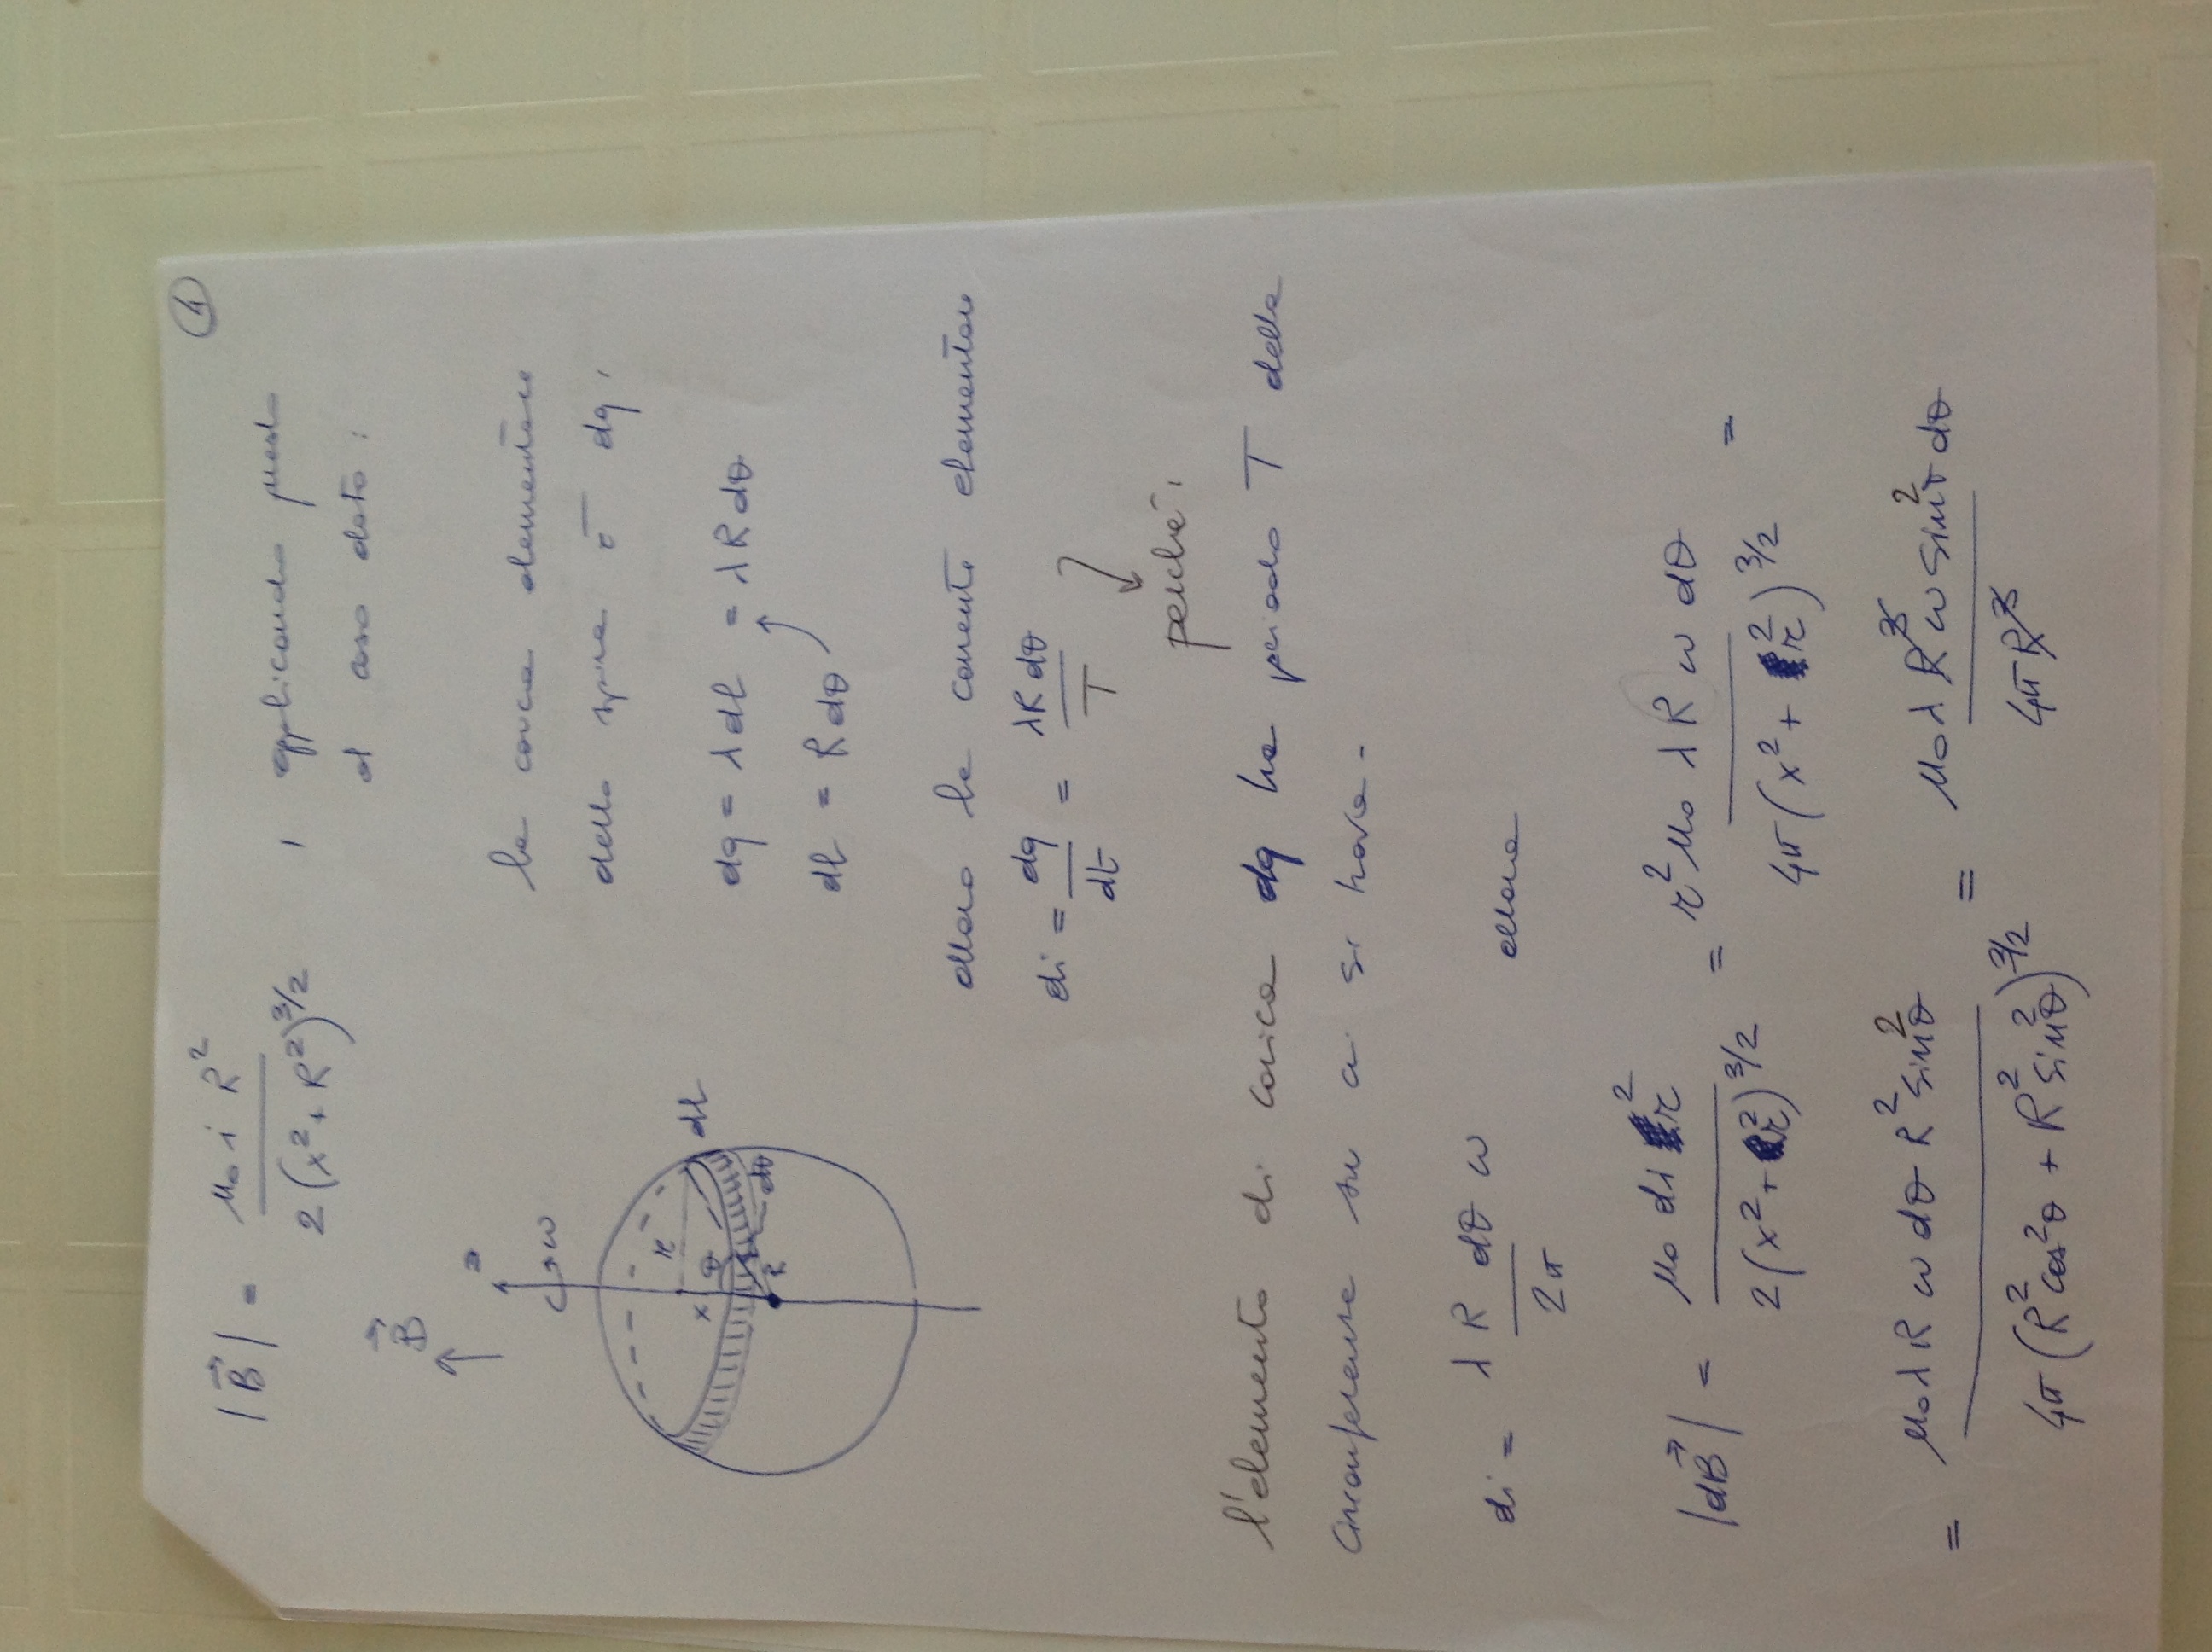 4
|B⃗| = μ₀ i R² / 2(x² + R²)^3/2 , applicando questo
al caso dato :
B⃗
ω
r
x θ dl
dθ
R
la carica elementare
della spira è dq ,
dq = λ dl = λ R dθ
dl = R dθ
allora la corrente elementare
di = dq/dt = λR dθ / T
perché ,
l'elemento di carica dq ha periodo T della
circonferenza su cui si trova -
di = λ R dθ ω / 2π allora
|dB⃗| = μ₀ di r² / 2(x² + r²)^3/2 = r² μ₀ λ R ω dθ / 4π(x² + r²)^3/2 =
= μ₀ λ R ω dθ R² sin²θ / 4π(R² cos²θ + R² sin²θ)^3/2 = μ₀ λ R³ ω sin²θ dθ / 4π R³